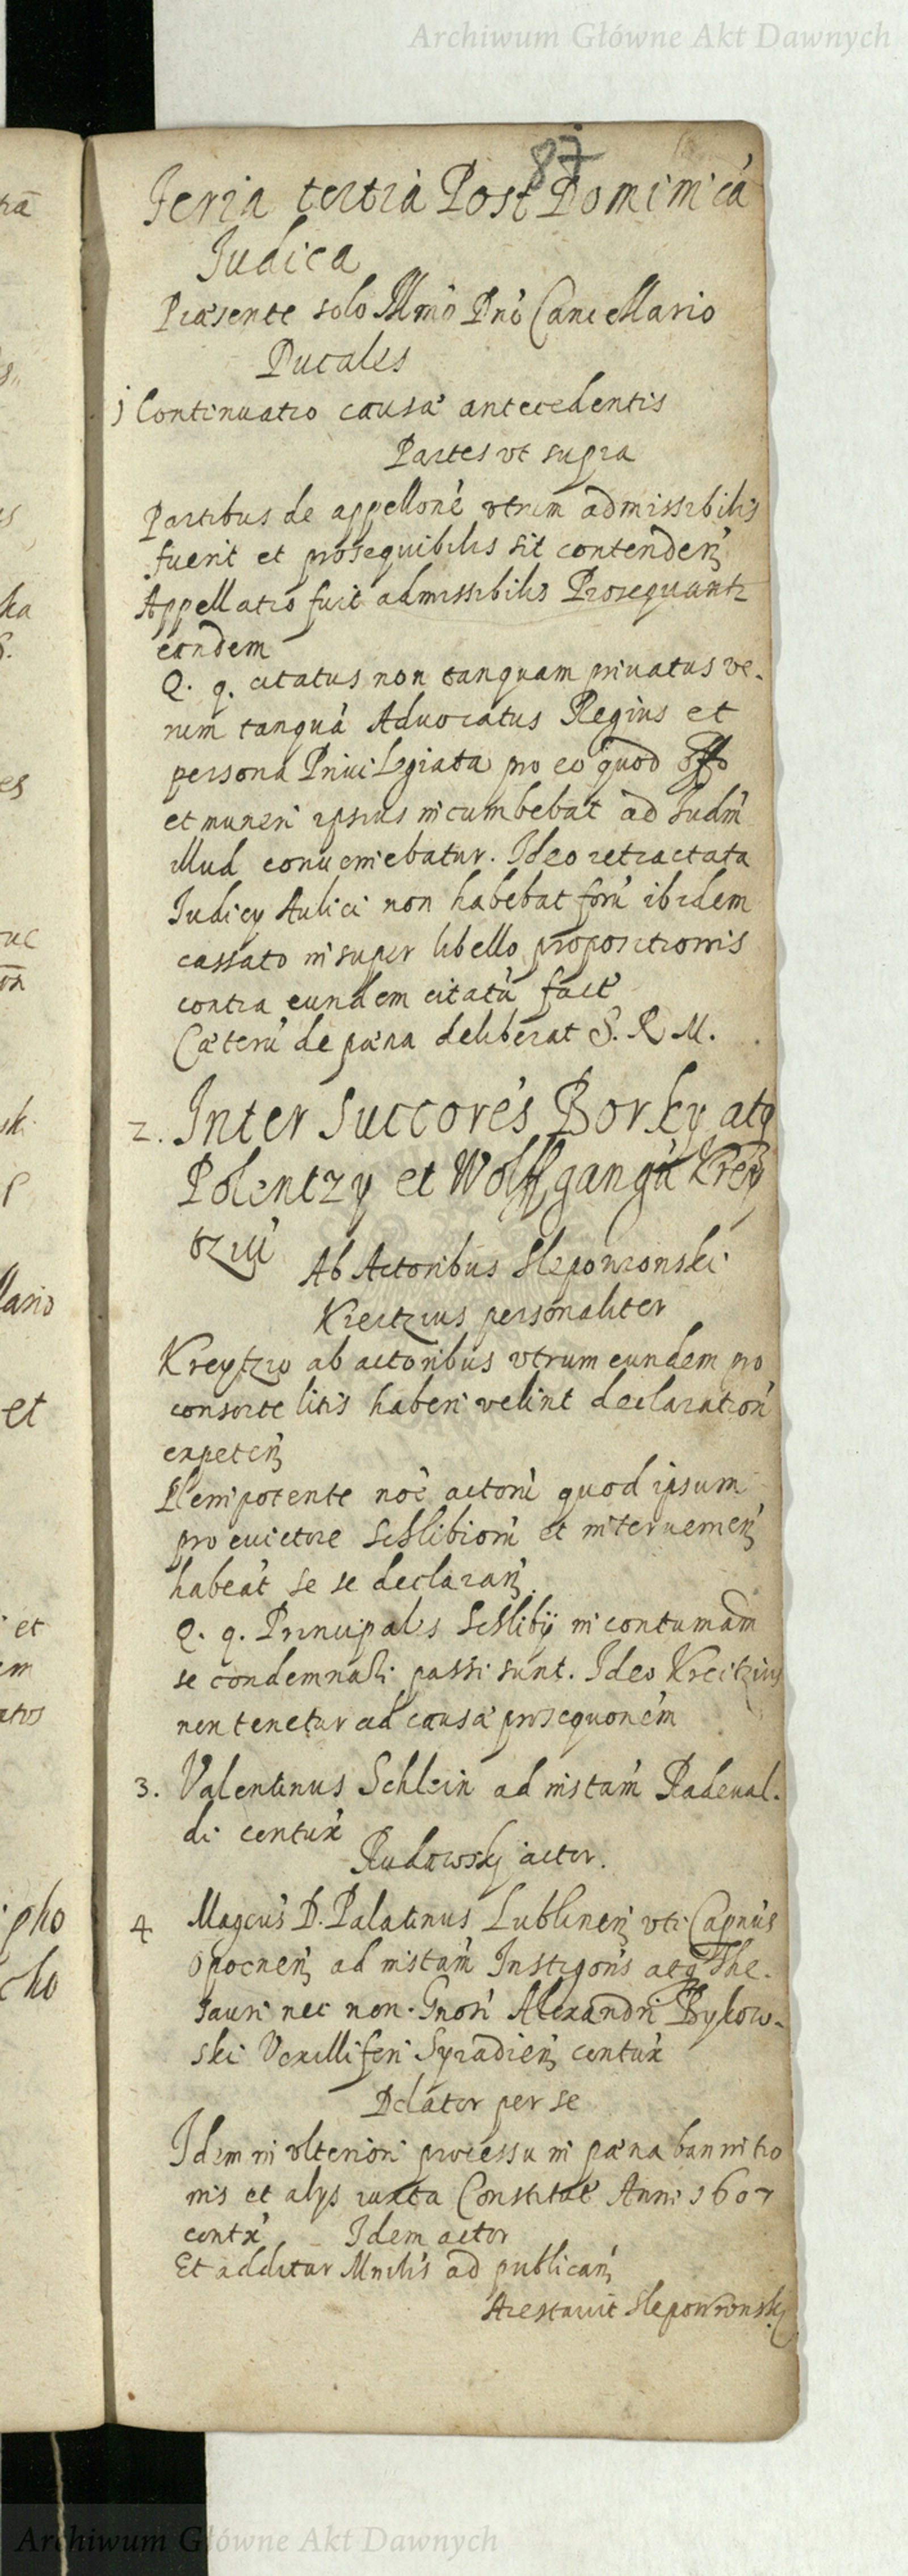 Archiwum Główne Akt Dawnych
87
Feria tertia Post Dominicā
Judica
Præsente solo Illmō Dnō Cancellario
Ducales
1 Continuatio causæ antecedentis
Partes vt supra
Partibus de appellonē vtrum admissibilis
fuerit et prosequibilis sit contendeñ
Appellatio fuit admissibilis Prosequantr
eandem
Q. q. citatus non tanquam priuatus ve-
rum tanquā Aduocatus Regius et
persona Priuilegiata pro eo quod offo
et muneri ipsius incumbebat ad Iudm
illud conueniebatur. Ideo retractata
Iudicy Aulici non habebat forū ibidem
cassato insuper libello propositionis
contra eundem citatū facit
Cæterū de pæna deliberat S. R M.
2. Inter Succorēs Borky atq
Polentzy et Wolffgangū Krey
tziū
Ab Actoribus Slepowronski
Kreitzius personaliter
Kreytzio ab actoribus vtrum eundem pro
consorte litis haberi velint declarationē
expeteñ
Plenipotente noē actorū quod ipsum
pro euictore Schlibiorū et interueneñ
habeāt se se declarañ
Q. q. Principales Schlibÿ in contumam
se condemnari passi sunt. Ideo Kreitzius
non tenetur ad causæ prosequonēm
3. Valentinus Schlein ad instam̄ Radeual-
di contux
Rudowsky actor.
4 Magcūs D. Palatinus Lublineñ vti Capnūs
Opocneñ ad instam̄ Instigoris atq The-
sauri nec non Gnosi Alexandri Bykow-
ski Vexilliferi Syradieñ contux
Delator per se
Idem in vlteriori processu in pæna bannitio
nis et alys iuxta Constitut Anni 1607
contx Idem actor
Et additur Mnrlis ad publicañ
Arestauit Slepowronsky
Archiwum Główne Akt Dawnych